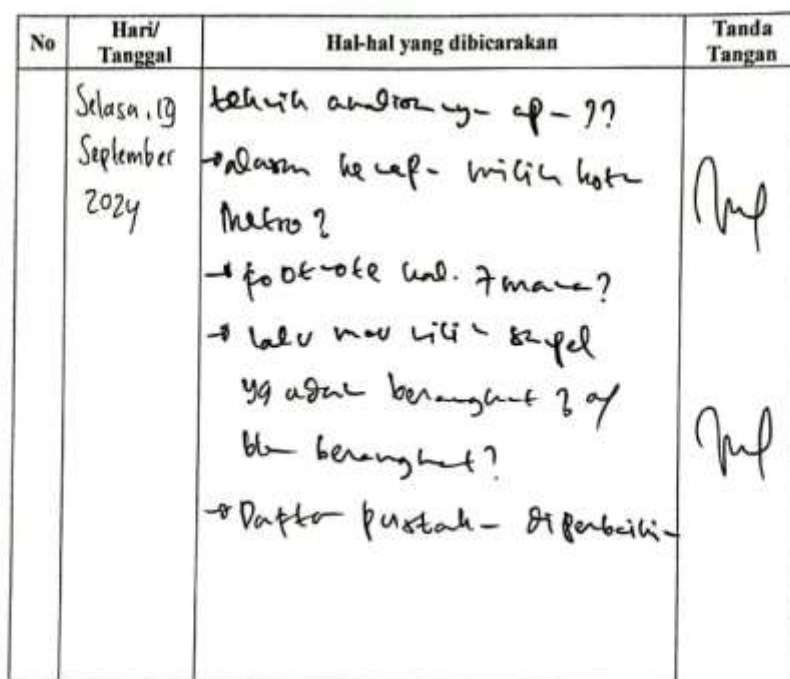 No Hari/ Tanggal Hal-hal yang dibicarakan Tanda Tangan
Selasa,
September
2024
teknik analisnya ap- ??
→ alasan kenap- milih kota
Metro ?
→ footnote hal. 7 mana ?
→ kalu mau
yg udah berangkat ? a/
blm berangkat ?
→ Daftar pustak- diperbaiki-